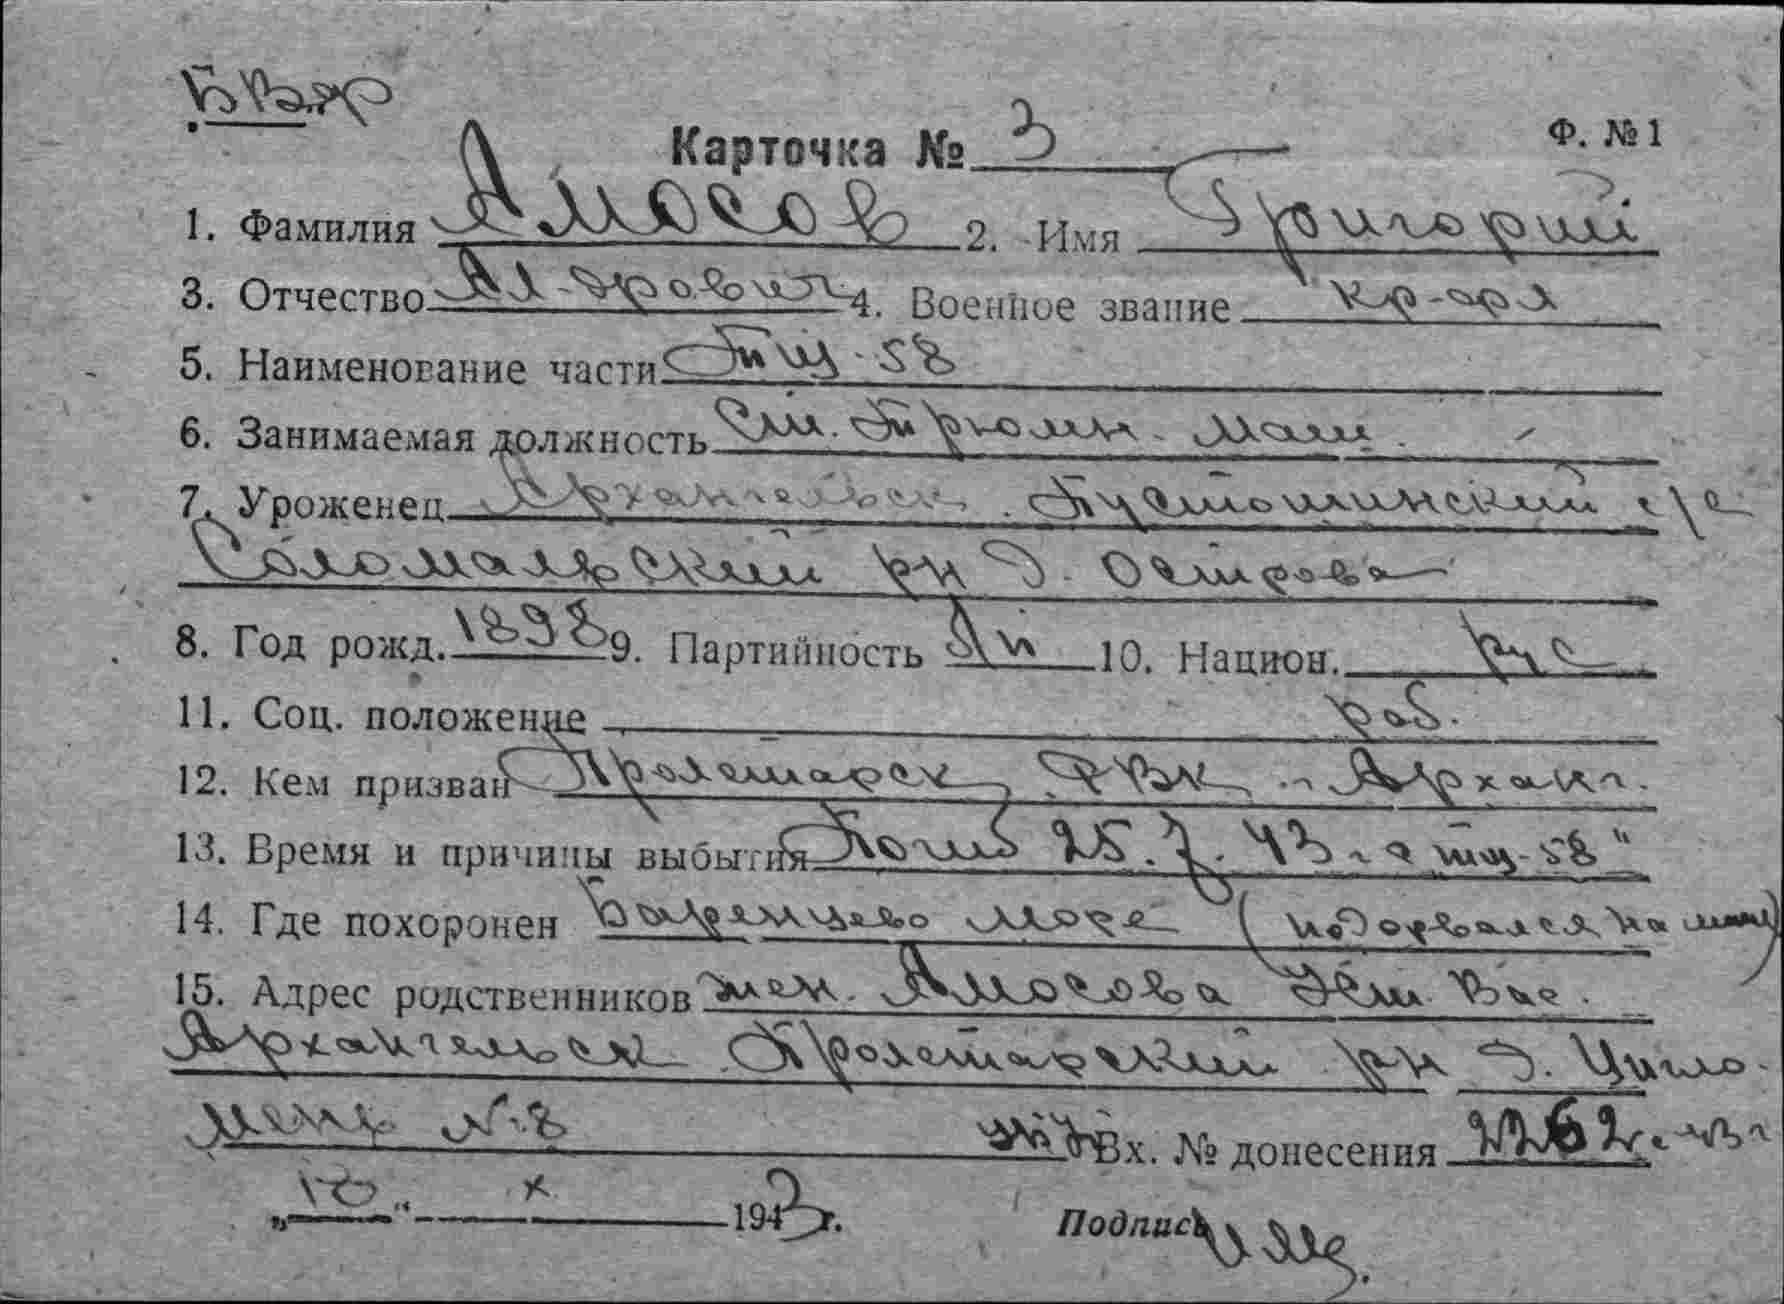 Карточка № 3 Ф. № 1
1. Фамилия Амосов 2. Имя Григорий
3. Отчество Ал-дрович 4. Военное звание кр-арм
5. Наименование части Тщ-58
6. Занимаемая должность Ст. Трюмн. маш.
7. Уроженец Архангельск. Пустошинский с/с
Соломальский рн д. Острова
8. Год рожд. 1898 9. Партийность 10. Национ. рус
11. Соц. положение раб.
12. Кем призван Пролетарск РВК г. Арханг.
13. Время и причины выбытия Погиб 25.7.43 г. с тщ-58"
14. Где похоронен Баренцево море (подорвался на мине)
15. Адрес родственников жен. Амосова Вас.
Архангельск Пролетарский рн д. Цигло-
мень №8 Вх. № донесения 2262с-43г
„18" X 1943 г. Подпись